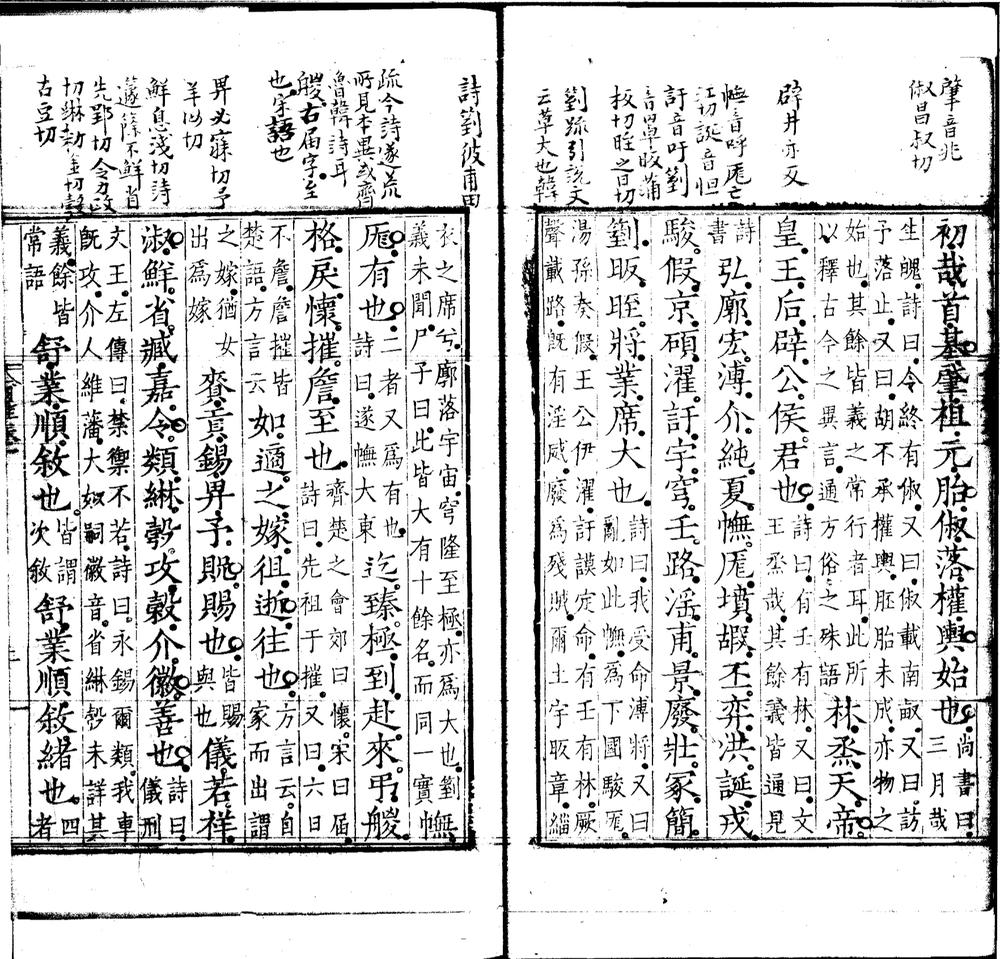 肇音兆
俶昌叔切
辟井亦反
幠音呼厖亡
江切誕音但
訏音吁箌
音罩昄蒲
板切晊之日切
箌疏引說文
云草大也韓
初哉首基肇祖元胎俶落權輿始也尚書曰三月哉
生魄詩曰令終有俶又曰俶載南畝又曰訪
予落止又曰胡不承權輿胚胎未成亦物之
始也其餘皆義之常行者耳此所
以釋古今之異言通方俗之殊語林烝天帝
皇王后辟公侯君也詩曰有壬有林又曰文
王烝哉其餘義皆通見
詩書弘廓宏溥介純夏幠厖墳嘏丕弈洪誕戎
駿假京碩濯訏宇穹壬路淫甫景廢壯冢簡
箌昄晊將業席大也詩曰我受命溥將又曰
亂如此幠為下國駿厖
湯孫奏假王公伊濯訏謨定命有壬有林厥
聲載路既有淫威廢為殘賊爾土宇昄章緇
詩箌彼甫田
疏今詩遂荒
所見本異或齊
魯韓詩耳
艐古屆字至
也宋語也
畀必寐切予
羊汝切
鮮息淺切詩
籧篨不鮮省
先郢切令力政
切綝勑金切彀
古豆切
衣之席兮廓落宇宙穹隆至極亦為大也箌
義未聞尸子曰此皆大有十餘名而同一實幠
厖有也二者又為有也
詩曰遂幠大東迄臻極到赴來弔艐
格戾懷摧詹至也齊楚之會郊曰懷宋曰屆
詩曰先祖于摧又曰六日
不詹詹摧皆
楚語方言云如適之嫁徂逝往也方言云自
家而出謂
之嫁猶女
出為嫁賚貢錫畀予貺賜也皆賜
與也儀若祥
淑鮮省臧嘉令類綝彀攻穀介徽善也詩曰
儀刑
文王左傳曰禁禦不若詩曰永錫爾類我車
既攻介人維藩大姒嗣徽音省綝彀未詳其
義餘皆
常語舒業順敘也皆謂
次敘舒業順敘緒也四
者